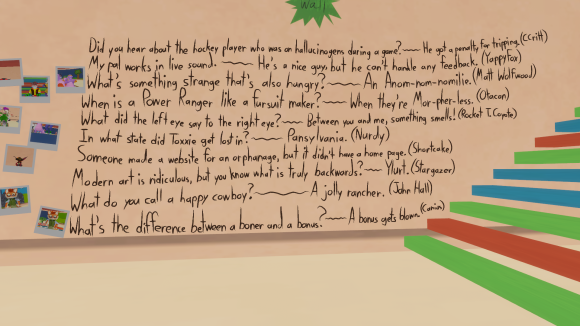 wall
Did you hear about the hockey player who was on hallucinogens during a game?~~ He got a penalty for tripping. (CCritt)
My pal works in live sound. ~~ He's a nice guy, but he can't handle any feedback. (Yappyfox)
What's something strange that's also hungry? ~~ An Anom-nom-nomilie. (Matt Wolfwood)
When is a Power Ranger like a fursuit maker? ~~ When they're Mor-pher-less. (Otacon)
What did the left eye say to the right eye? ~~ Between you and me, something smells! (Rocket T. Coyote)
In what state did Toxxie get lost in? ~~ Pansylvania. (Nurdy)
Someone made a website for an orphanage, but it didn't have a home page. (Shortcake)
Modern art is ridiculous, but you know what is truly backwards? ~ Ylurt. (Stargazer)
What do you call a happy cowboy? ~~ A jolly rancher. (John Hall)
What's the difference between a boner and a bonus? ~~ A bonus gets blown. (Canin)